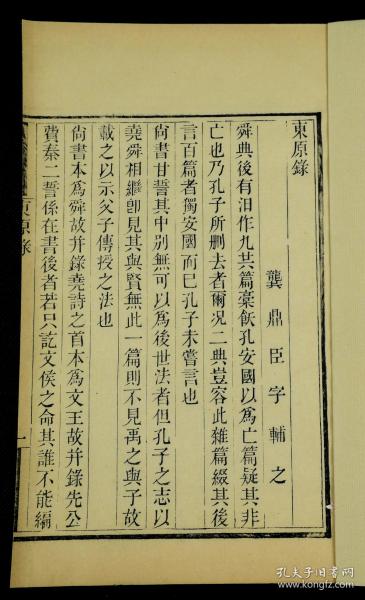 東原錄
龔鼎臣字輔之
舜典後有汨作九共篇槀飫孔安國以爲亡篇疑其非
亡也乃孔子所刪去者爾况二典豈容此雜篇綴其後
言百篇者獨安國而已孔子未嘗言也
尙書甘誓其中别無可以爲後世法者但孔子之志以
堯舜相繼卽見其與賢無此一篇則不見禹之與子故
載之以示父子傳授之法也
尙書本爲舜故并錄堯詩之首本爲文王故并錄先公
費秦二誓係在書後者若只訖文侯之命其誰不能編
東原錄
一
孔夫子旧书网